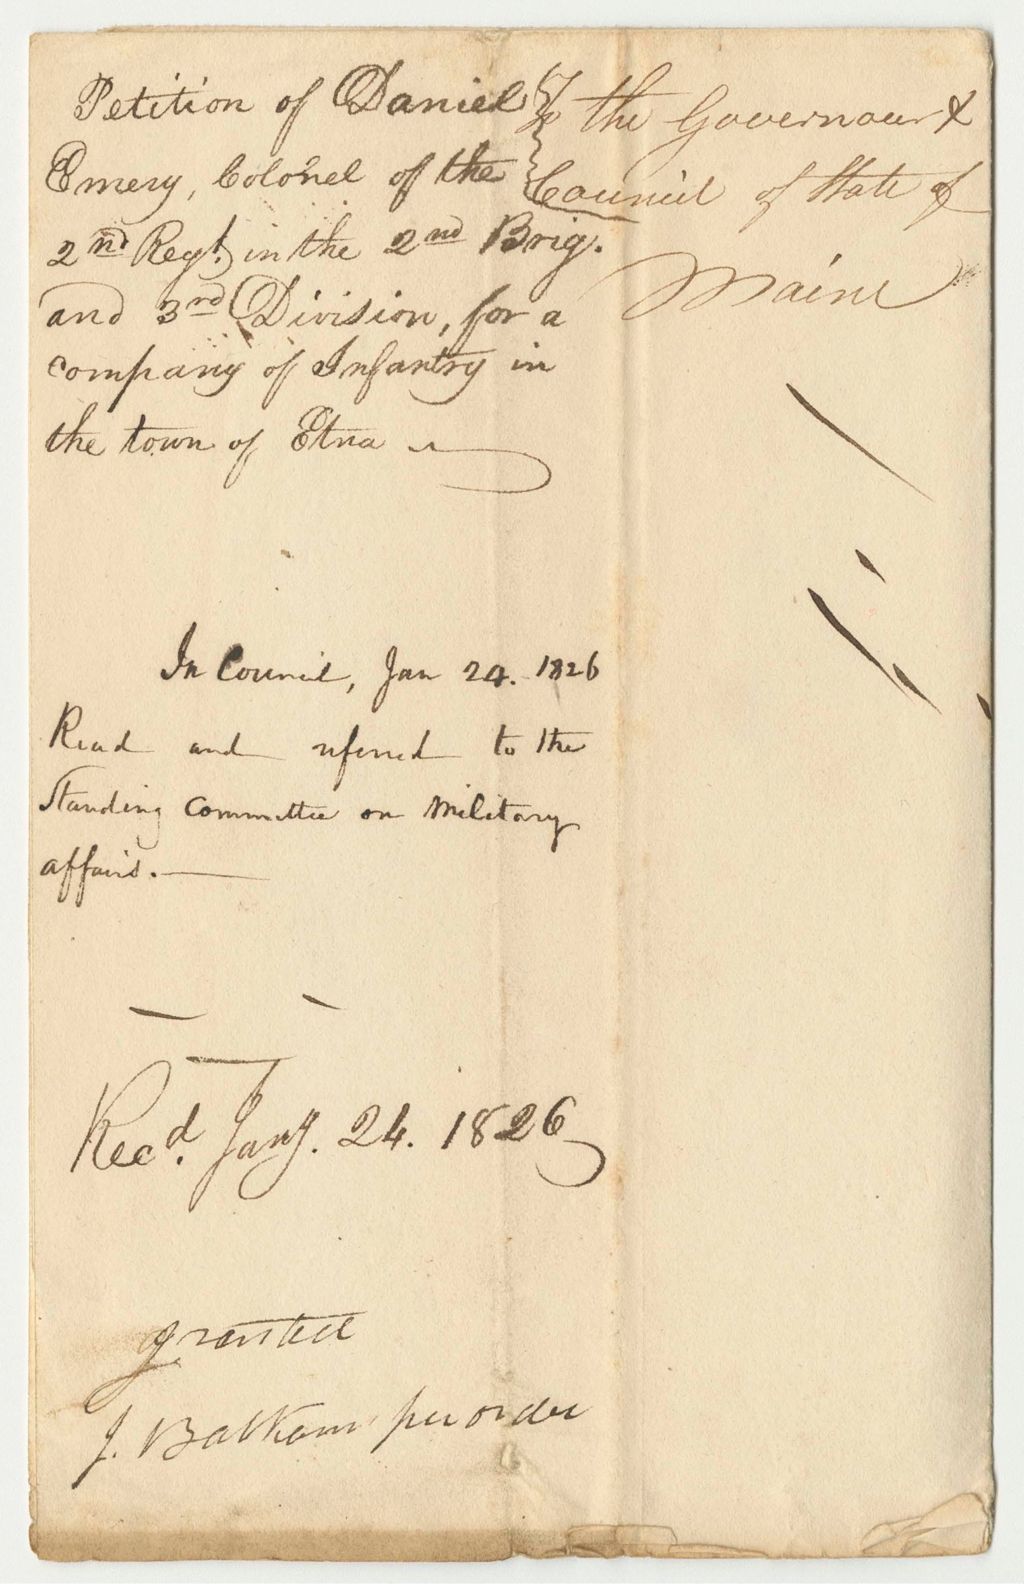 Petition of Daniel
Emery, Colonel of the
2nd Regt. in the 2nd Brig.
and 3rd Division, for a
company of Infantry in
the town of Etna
To the Governour &
Council of State of
Maine
In Council, Jan 24. 1826
Read and referred to the
Standing Committee on Military
affairs.
Recd. Jany. 24. 1826
granted
J. Balkam per order